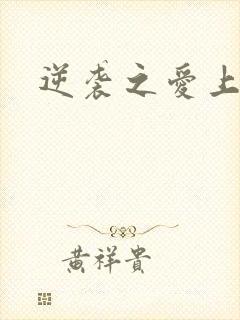 逆袭之爱上
黄祥贵